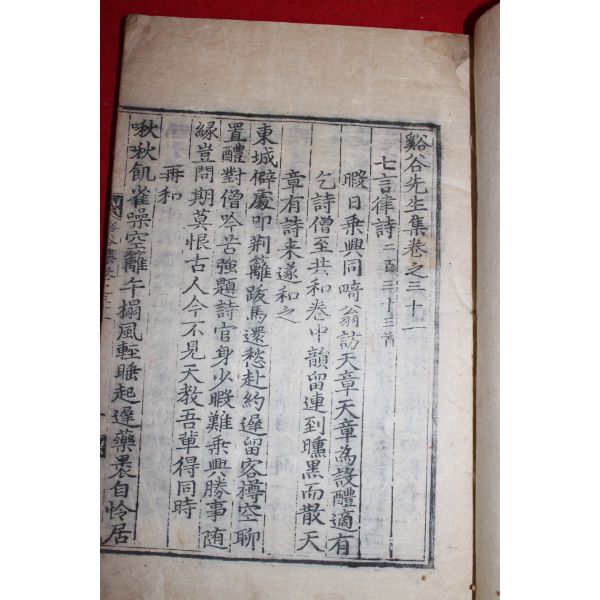 谿谷先生集卷之三十一
七言律詩 二百三十三首
暇日乘興同畸翁訪天章天章為設醴適有
乞詩僧至共和卷中韻留連到曛黑而散天
章有詩来遂和之
東城僻處叩荆籬跋馬還愁赴約遲留客樽空聊
置醴對僧吟苦強題詩官身少暇難乘興勝事随
緣豈問期莫恨古人今不見天教吾輩得同時
再和
啾啾飢雀噪空籬午搨風輕睡起遲藥裹自怜居